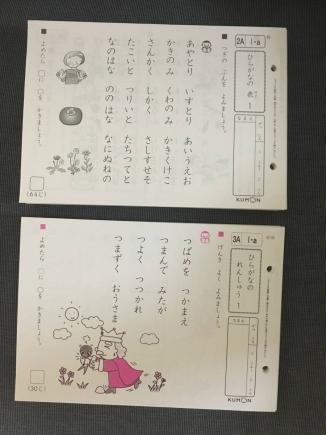 2A 1-a
ひらがなの表1
つぎの ぶんを よみましょう。
あやとり いすとり あいうえお
かきのみ くわのみ かきくけこ
さんかく しかく さしすせそ
たこいと つりいと たちつてと
なのはな ののはな なにぬねの
よめたら □に ○を かきましょう。
(64じ)
KUMON
3A 1-a
ひらがなの れんしゅう1
げんき よく よみましょう。
つばめを つかまえ
つまんで みたが
つよく つつかれ
つまずく おうさま
よめたら □に ○を かきましょう。
(30じ)
KUMON